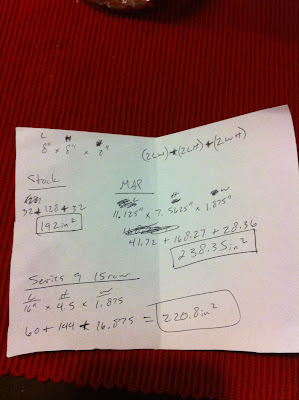 L H
8" x 8" x 2"
(2LW)+(2LH)+(2WH)
Stock
32+128+32
192in²
MAP
L H W
11.125" x 7.5625" x 1.875"
41.72 + 168.27 + 28.36
238.35in²
Series 9 15row
L H W
16" x 4.5 x 1.875
60+144+16.875 = 220.8in²